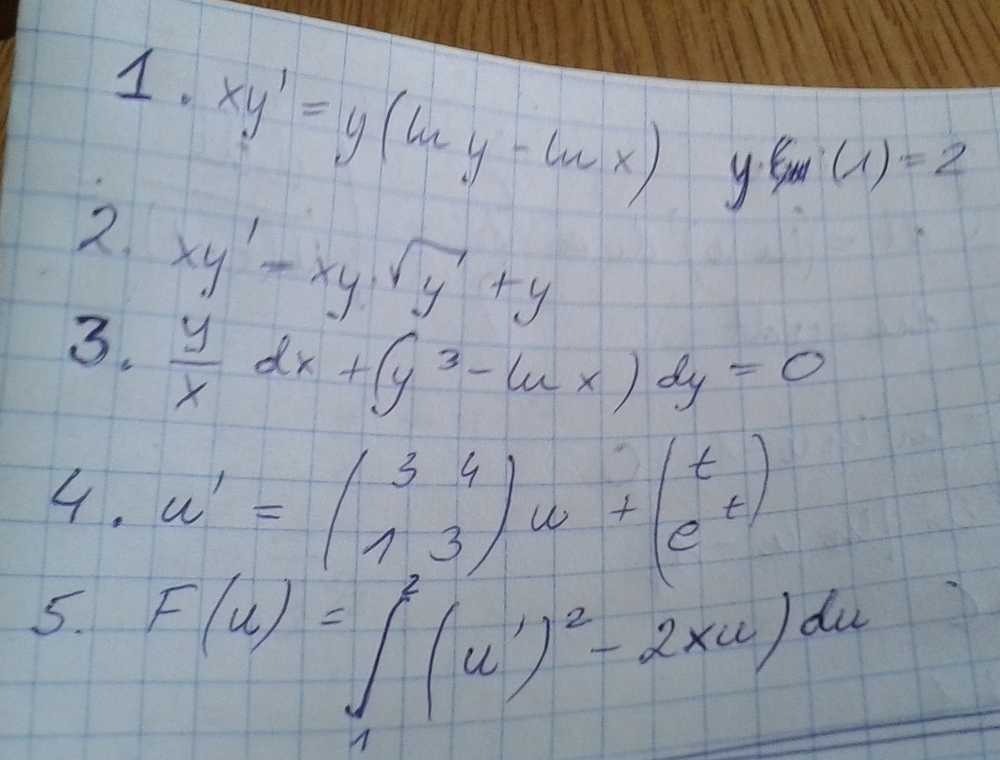 1. xy' = y(ln y - ln x) y (1) = 2
2. xy' = xy · √y + y
3. y/x dx + (y³ - ln x) dy = 0
4. u' = (3 4; 1 3) u + (t; e^t)
5. F(u) = ∫₁² (u')² - 2xu) du